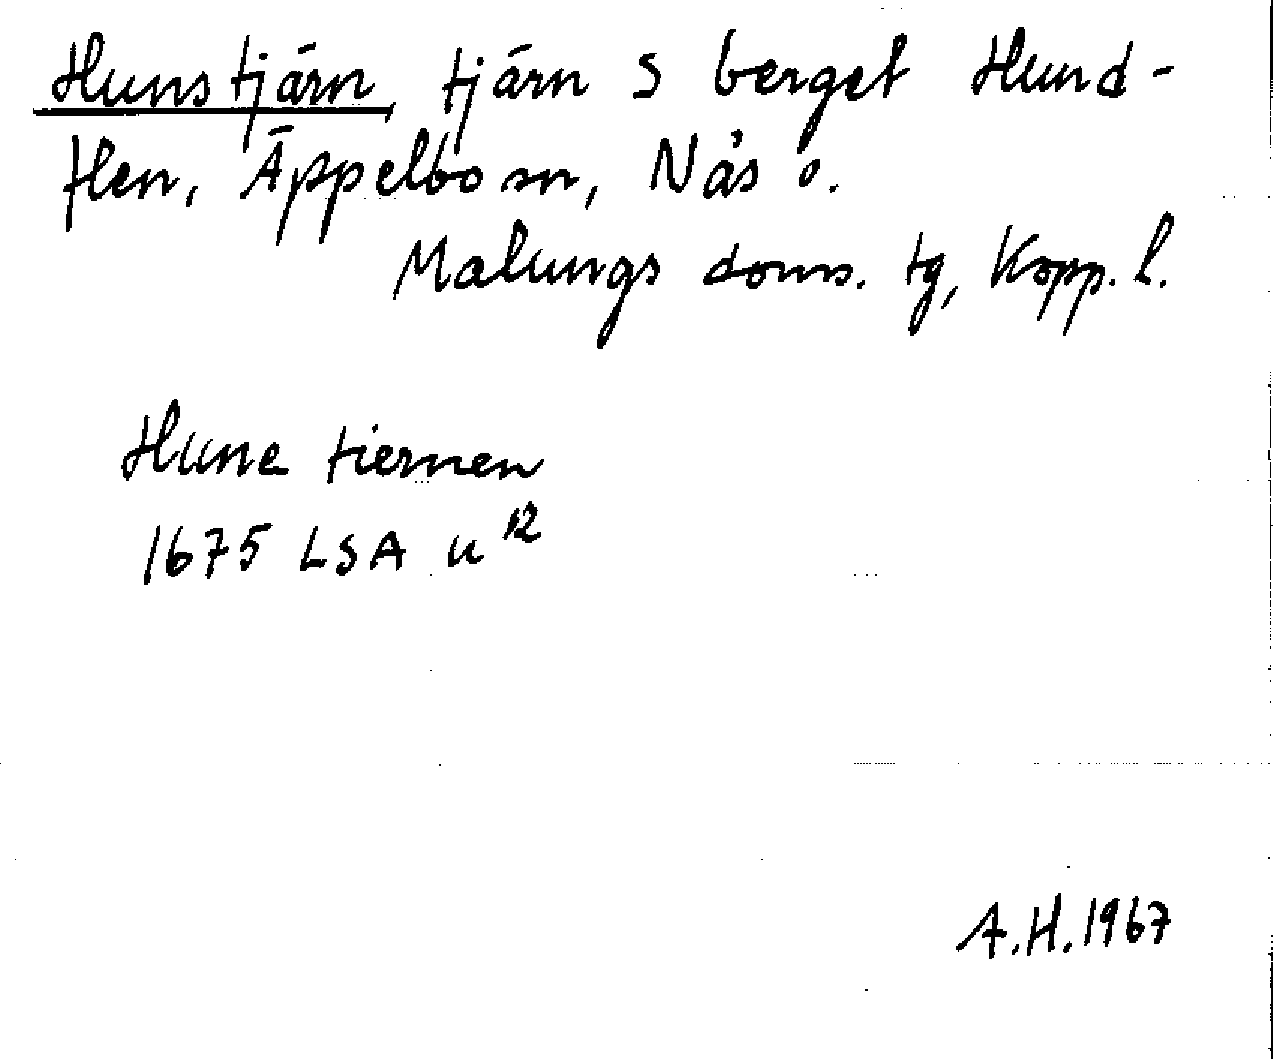 Hunstjärn, tjärn S berget Hund-
flen, Äppelbo sn, Nås o.
Malungs doms. tg, Kopp. l.
Hune tiernen
1675 LSA u 12
A.H. 1967